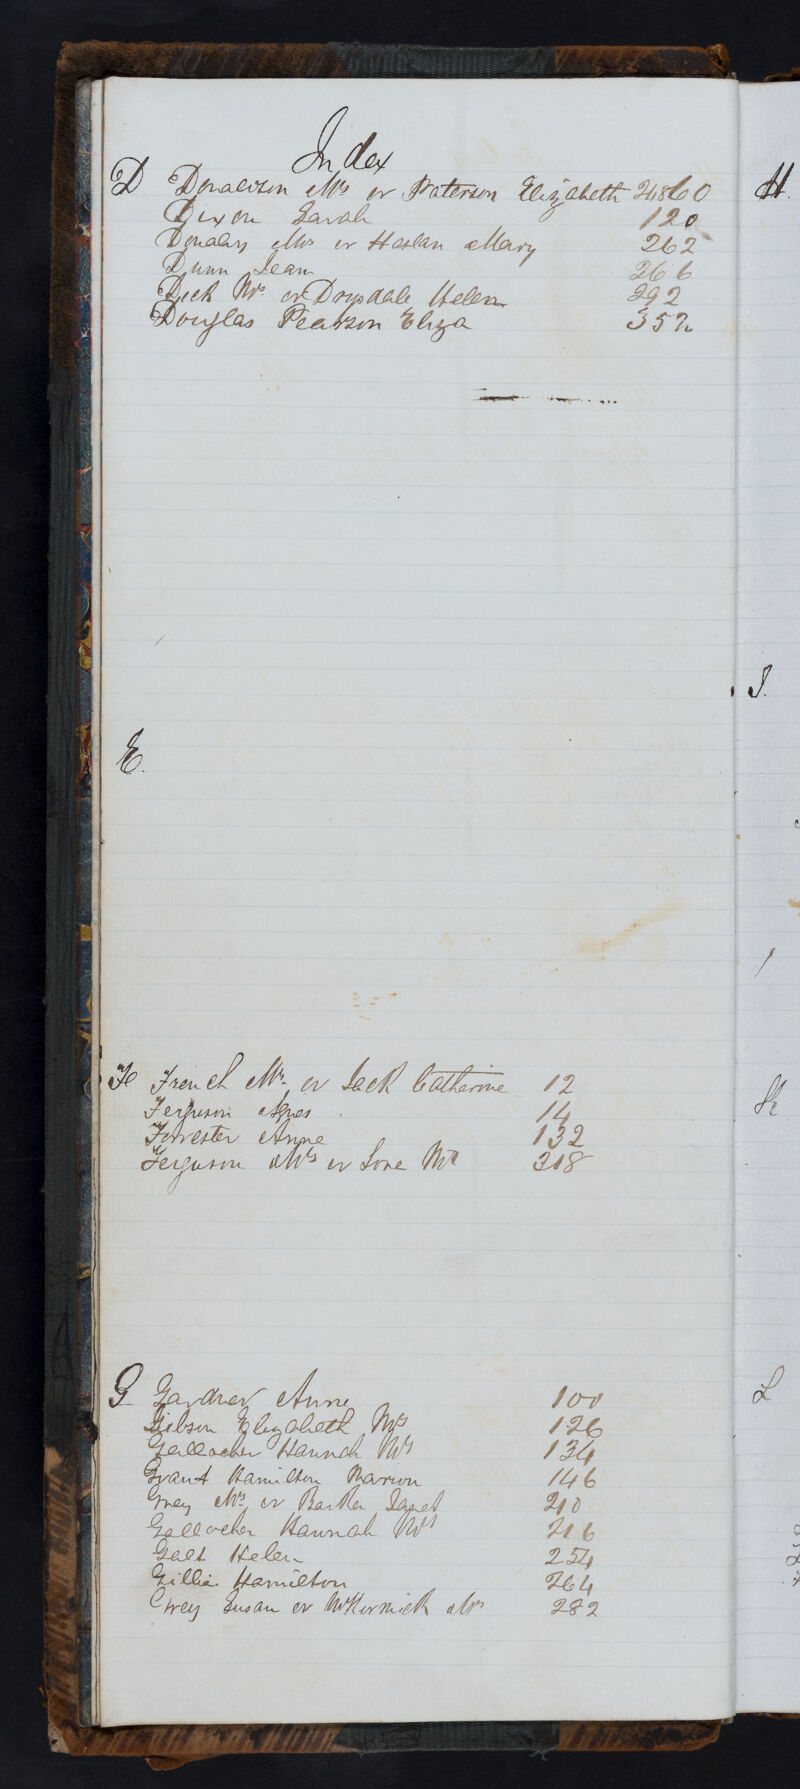 Index
D Donaldson Mrs or Paterson Elizabeth 24860
Dixon Sarah 120
Donally Mrs or Haslan Mary 262
Dunn Jean 266
Dick Mrs or Drysdale Helen 292
Douglas Pearson Eliza 352
E.
F French Mrs or Jack Catherine 12
Ferguson Agnes 14
Forrester Anne 132
Ferguson Mrs or Love 318
G Gardner Anne 100
Gibson Elizabeth Mrs 126
Gallocher Hannah Mrs 134
Grant Hamilton Marion 146
Grey Mrs or Barker Janet 210
Gallocher Hannah Mrs 216
Galt Helen 254
Gillie Hamilton 264
Grey Susan or McKormick Mrs 282
H.
I.
K
L